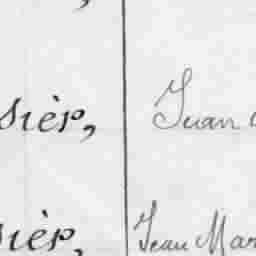 sièr, Juan
sièr, Jean Mar